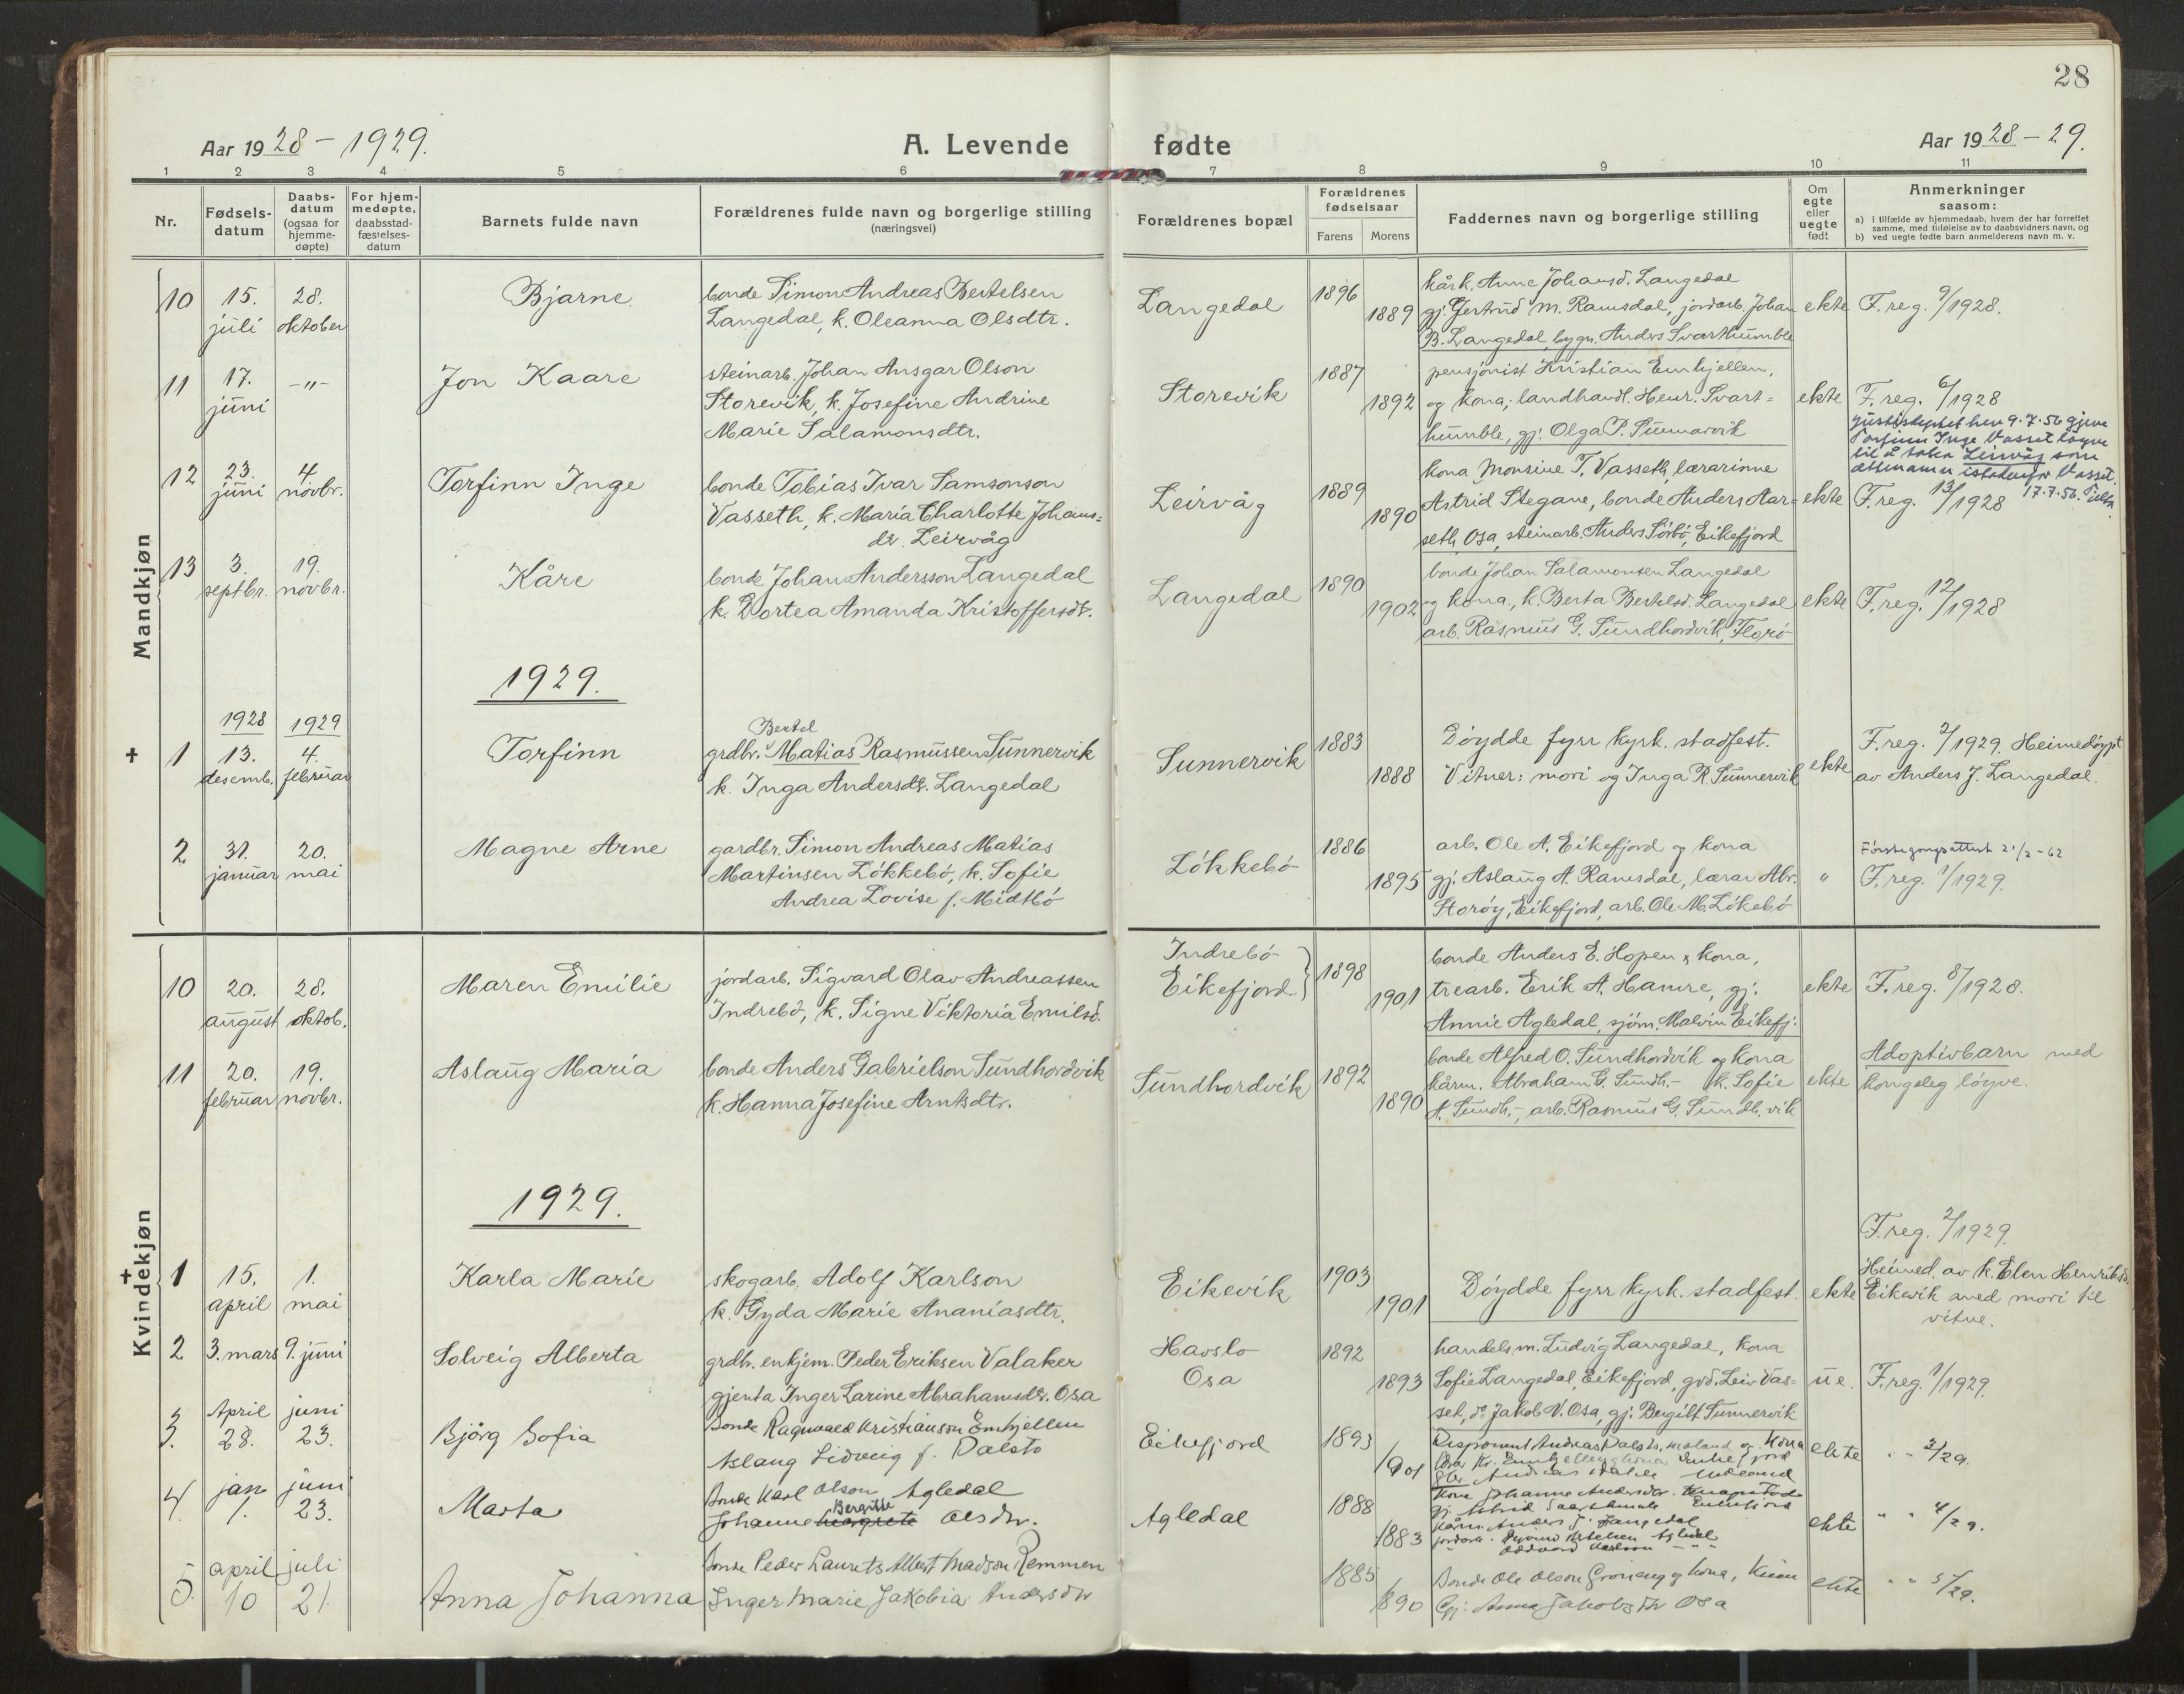 28
Aar 1928 - 1929.
A. Levende fødte
Aar 1928 - 29.
1 2 3 4 5 6 7 8 9 10 11
Nr.
Fødsels-
datum
Daabs-
datum
(ogsaa for
hjemme-
døpte)
For hjem-
medøpte,
daabsstad-
fæstelses-
datum
Barnets fulde navn
Forældrenes fulde navn og borgerlige stilling
(næringsvei)
Forældrenes bopæl
Forældrenes
fødselsaar
Farens Morens
Faddernes navn og borgerlige stilling
Om
egte
eller
uegte
født
Anmerkninger
saasom:
a) i tilfælde av hjemmedaab, hvem der har forrettet
samme, med tilføielse av to daabsvidners navn, og
b) ved uegte fødte barn anmelderens navn m. v.
Mandkjøn
10
15.
juli
28.
oktober
Bjarne
bonde Simon Andreas Bertelsen
Langedal, k. Oleanna Olsdtr.
Langedal
1896
1889
kårk. Anne Johansd. Langedal
gj. Gertrud M. Ramsdal, jordarb. Johan
B. Langedal, bygn. Anders Svarthumble
ekte
F. reg. 9/1928.
11
17.
juni
-"-
Jon Kaare
steinarb. Johan Ansgar Olson
Storevik, k. Josefine Andrine
Marie Salamonsdtr.
Storevik
1887
1892
pensjonist Kristian Emhjellen,
og kona; landhandl. Henr. Svart=
humble, gj. Olga P. Sunnarvik
ekte
F. reg. 6/1928
12
23.
juni
4
novbr.
Torfinn Inge
bonde Tobias Ivar Samsonson
Vasseth, k. Maria Charlotte Johans=
dr. Leirvåg
Leirvåg
1889
1890
kona Monsine T. Vasseth, lærarinne
Astrid Stegane, bonde Anders Aar=
seth, Osa, steinarb. Anders Sörbö, Eikefjord
ekte
Justisdeptet hev 9.7.56 gjeve
Torfinn Inge Vasset løyve
til å taka Leirvåg som
ættenamn istadenfor Vasset.
17.7.56.
F. reg. 13/1928
13
3.
septbr.
19.
novbr.
Kåre
bonde Johan Andersson Langedal
k. Dortea Amanda Kristoffersdt.
Langedal
1890
1902
bonde Johan Salamonsen Langedal
og kona, k. Berta Bertelsd. Langedal
arb. Rasmus G. Sundhordvik, Florö
ekte
F. reg. 12/1928
1929.
1928 1929
✝ 1
13.
desemb.
4.
februar
Torfinn
Bertel
grdbr. Matias Rasmussen Sunnervik
k. Inga Andersdt. Langedal
Sunnervik
1883
1888
Döydde fyrr kyrk. stadfest.
Vitner: mori og Inga R. Sunnervik
ekte
F. reg. 2/1929. Heimedöypt
av Anders J. Langedal.
2
31.
januar
20.
mai
Magne Arne
gardbr. Simon Andreas Matias
Martinsen Lökkebö, k. Sofie
Andrea Lovise f. Midtbö
Lökkebö
1886
1895
arb. Ole A. Eikefjord og kona
gj. Aslaug A. Ramsdal, lærar Abr.
Storöy, Eikefjord, arb. Ole M. Lökebö
"
Förstegongsattest 21/2-62
F. reg. 1/1929.
Kvindekjøn
10
20.
august
28.
oktob.
Maren Emilie
jordarb. Sigvard Olav Andreassen
Indrebö, k. Signe Viktoria Emilsd.
Indrebö
Eikefjord
1898
1901
bonde Anders E. Hopen & kona,
trearb. Erik A. Hamre, gj.
Annie Agledal, sjöm. Malvin Eikefj.
ekte
F. reg. 8/1928.
11
20.
februar
19.
novbr.
Aslaug Maria
bonde Anders Gabrielson Sundhordvik
k. Hanna Josefine Arntsdtr.
Sundhordvik
1892
1890
bonde Alfred O. Sundhordvik og kona
kårm. Abraham G. Sundh.- k. Sofie
A. Sundh.-, arb. Rasmus G. Sundh.vik
ekte
Adoptivbarn med
kongeleg löyve.
1929.
✝ 1
15.
april
1.
mai
Karla Marie
skogarb. Adolf Karlson
k. Gyda Marie Ananiasdtr.
Eikevik
1903
1901
Döydde fyrr kyrk. stadfest.
ekte
F. reg. 2/1929.
Heimed. av k. Elen Henriksd.
Eikevik med mori til
vitne.
2
3. mars
9. juni
Solveig Alberta
grdbr. enkjem. Peder Eriksen Valaker
gjenta Inger Larine Abrahamsdr. Osa
Havslo
Osa
1892
1893
handelsm. Ludvig Langedal, kona
Sofie Langedal, Eikefjord, grd. Leiv Vas=
set, do Jakob V. Osa, gj. Bergitt Sunnervik
ue.
F. reg. 1/1929.
3.
April
28.
juni
23.
Bjørg Sofia
Bonde Ragnvald Kristianson Emhjellen
Aslaug Lidveig f. Dalsto
Eikefjord
1893
1901
Disponent Andreas og kona
ekte
" - 3/29.
4.
jan
1.
juni
23.
Marta
Bonde Karl Olson Agledal
Bergitte
Johanne Margrete Olsdtr.
Agledal
1888
1883
Kårm. Anders J. Langedal
ekte
" " 4/29.
5.
april
10
juli
21
Anna Johanna
Bonde Peder Laurits Albert Madson Remmen
Inger Marie Jakobia Andersdtr
1885
1890
Bonde Ole Olson og kona,
Gj: Anna Jakobsdtr Osa
ekte
" " 5/29.